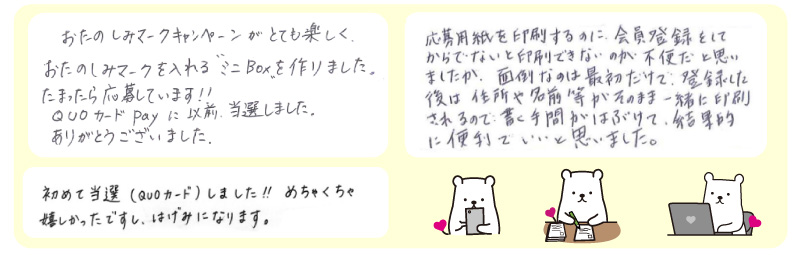 おたのしみマークキャンペーンがとても楽しく、
おたのしみマークを入れる"ミニBox"を作りました。
たまったら応募しています!!
QUOカードPayに以前、当選しました。
ありがとうございました。
初めて当選(QUOカード)しました!! めちゃくちゃ
嬉しかったですし、はげみになります。
応募用紙を印刷するのに、会員登録をして
からでないと印刷できないのが不便だと思い
ましたが、面倒なのは最初だけで、登録した
後は住所や名前等がそのまま一緒に印刷
されるので、書く手間がはぶけて、結果的
に便利でいいと思いました。